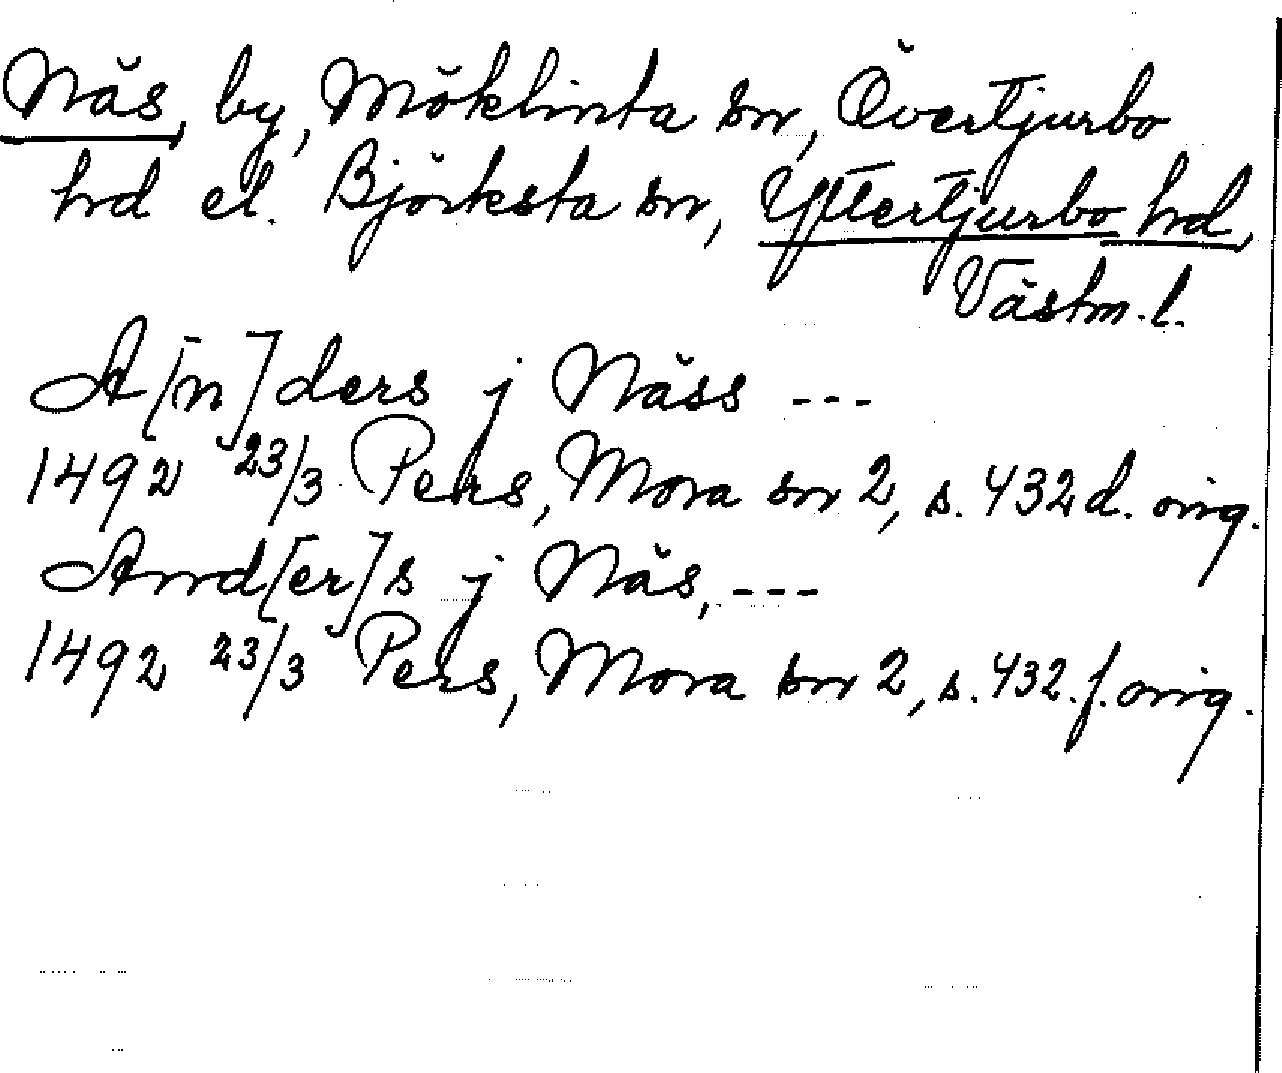 Näs, by, Möklinta sn, Övertjurbo
hrd el. Björksta sn, Yttertjurbo hrd,
Västm. l.
A[n]ders j Näss ---
1492 23/3 Pers, Mora sn 2, s. 432 d. orig.
And[er]s j Näs, ---
1492 23/3 Pers, Mora sn 2, s. 432. f. orig.